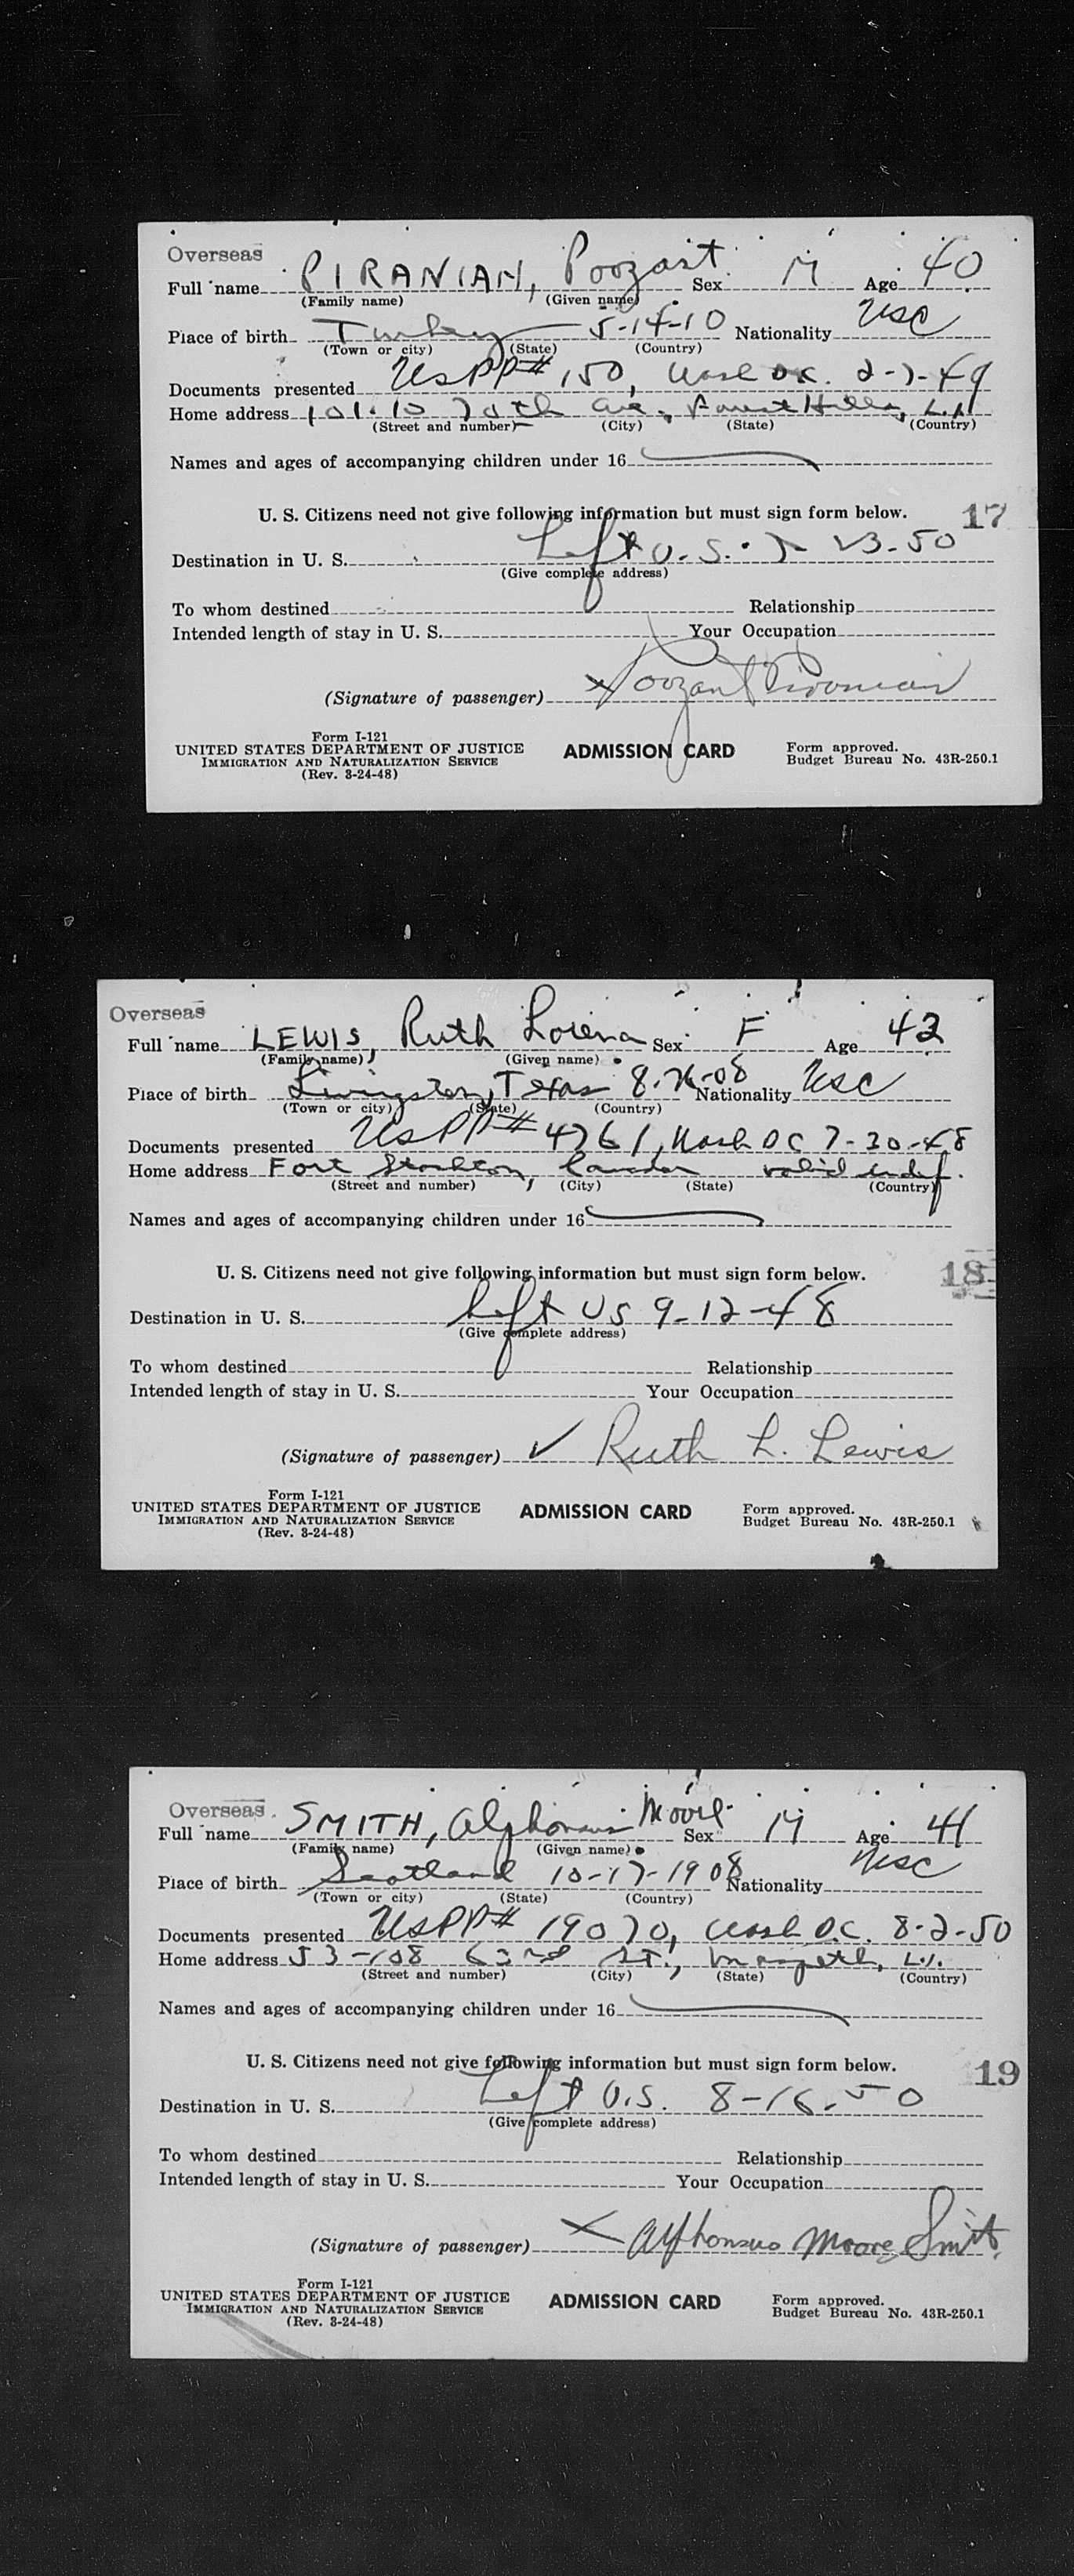 Overseas
Full name PIRANIAN, Poozant Sex M Age 40
(Family name) (Given name)
Place of birth Turkey 5-14-10 Nationality USC
(Town or city) (State) (Country)
Documents presented USPP# 150, Wash DC. 2-7-49
Home address 101-10 70th Ave., Forest Hills, L.I.
(Street and number) (City) (State) (Country)
Names and ages of accompanying children under 16
U. S. Citizens need not give following information but must sign form below. 17
Destination in U. S. Left U.S. 7-23-50
(Give complete address)
To whom destined Relationship
Intended length of stay in U. S. Your Occupation
(Signature of passenger) x Poozant Piranian
Form I-121
UNITED STATES DEPARTMENT OF JUSTICE ADMISSION CARD Form approved.
IMMIGRATION AND NATURALIZATION SERVICE Budget Bureau No. 43R-250.1
(Rev. 3-24-48)
Overseas
Full name LEWIS, Ruth Lorena Sex F Age 42
(Family name) (Given name)
Place of birth Livingston, Texas 8-26-08 Nationality USC
(Town or city) (State) (Country)
Documents presented USPP# 4761, Wash DC 7-30-48
Home address Fort Stockton, valid indef.
(Street and number) (City) (State) (Country)
Names and ages of accompanying children under 16
U. S. Citizens need not give following information but must sign form below. 18
Destination in U. S. Left US 9-12-48
(Give complete address)
To whom destined Relationship
Intended length of stay in U. S. Your Occupation
(Signature of passenger) ✓ Ruth L. Lewis
Form I-121
UNITED STATES DEPARTMENT OF JUSTICE ADMISSION CARD Form approved.
IMMIGRATION AND NATURALIZATION SERVICE Budget Bureau No. 43R-250.1
(Rev. 3-24-48)
Overseas
Full name SMITH, Alphonsus Moore Sex M Age 41
(Family name) (Given name)
Place of birth Scotland 10-17-1908 Nationality USC
(Town or city) (State) (Country)
Documents presented USPP# 19070, Wash D.C. 8-2-50
Home address 53-108 63rd St., Maspeth, L.I.
(Street and number) (City) (State) (Country)
Names and ages of accompanying children under 16
U. S. Citizens need not give following information but must sign form below. 19
Destination in U. S. Left U.S. 8-16-50
(Give complete address)
To whom destined Relationship
Intended length of stay in U. S. Your Occupation
(Signature of passenger) x Alphonsus Moore Smith
Form I-121
UNITED STATES DEPARTMENT OF JUSTICE ADMISSION CARD Form approved.
IMMIGRATION AND NATURALIZATION SERVICE Budget Bureau No. 43R-250.1
(Rev. 3-24-48)